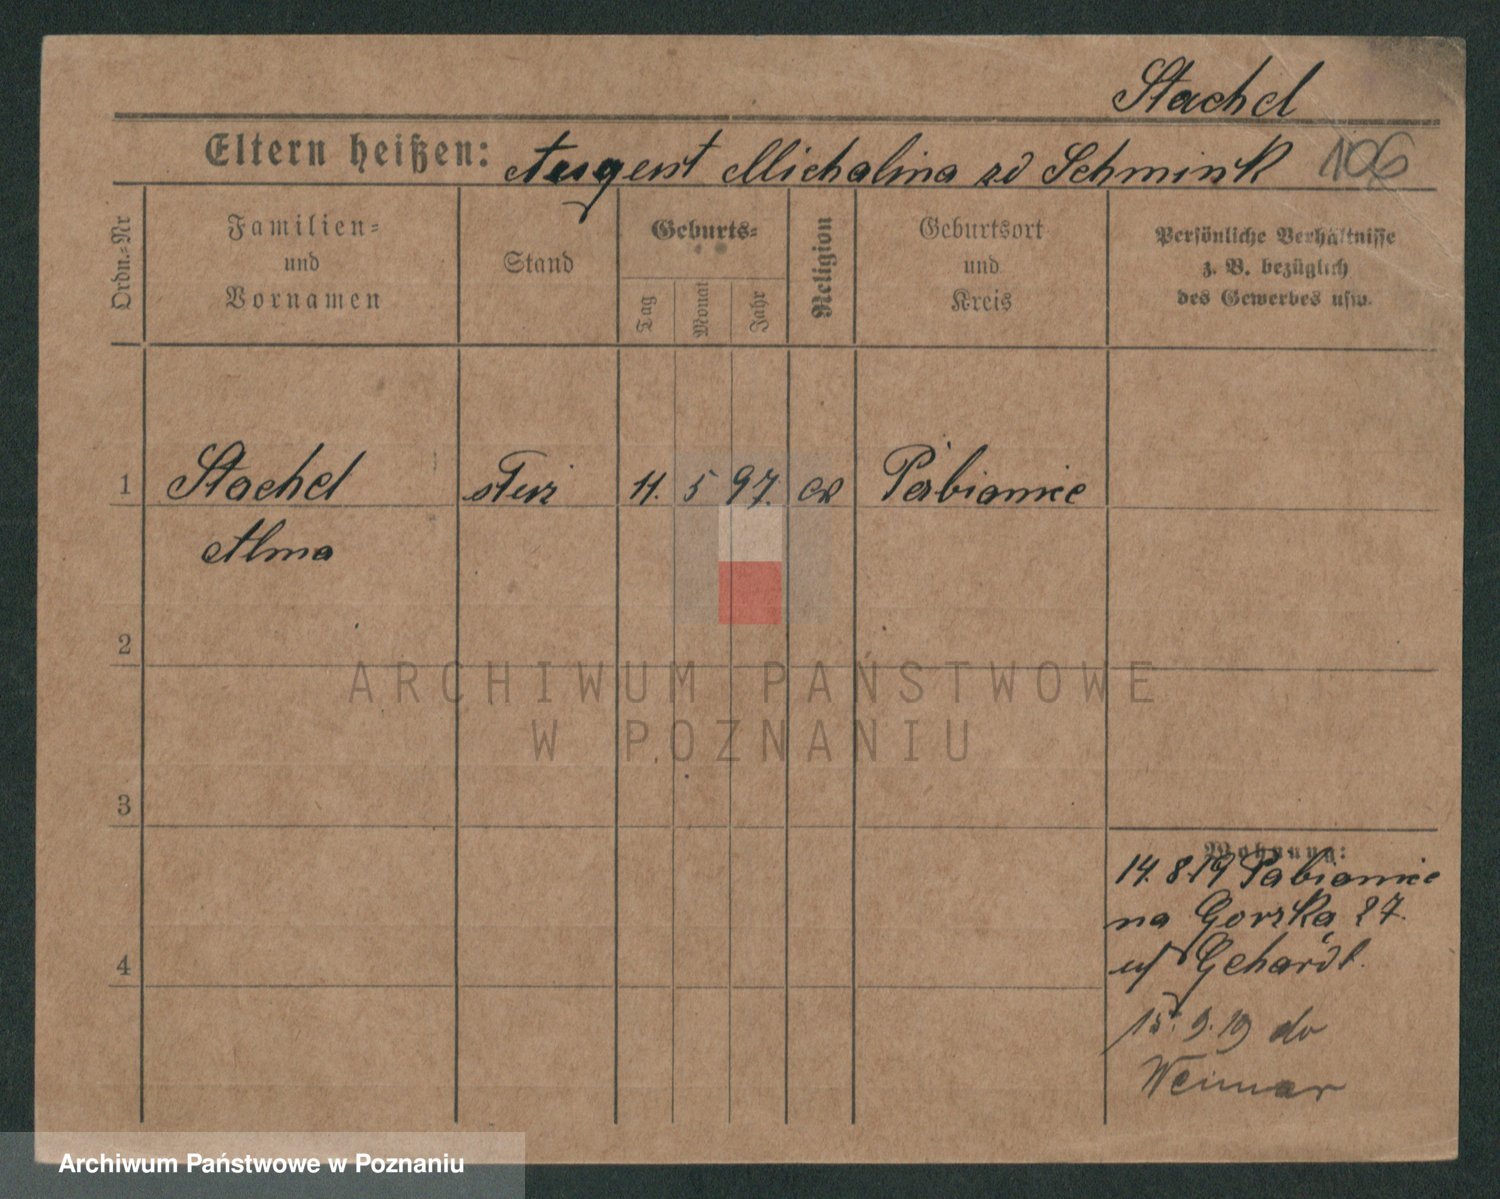 Stachel
Eltern heißen: August Michalina zd Schmink 106
Ordn.-Nr
Familien-
und
Vornamen
Stand
Geburts-
Tag
Monat
Jahr
Religion
Geburtsort
und
Kreis
Persönliche Verhältnisse
z. B. bezüglich
des Gewerbes usw.
1 Stachel 11. 5 97. Pabianice
Alma
2
ARCHIWUM PAŃSTWOWE
W POZNANIU
3
Wohnung:
14. 8.19 Pabianice
na Gorska 27.
4
15. 9.19 do
Weimar
Archiwum Państwowe w Poznaniu